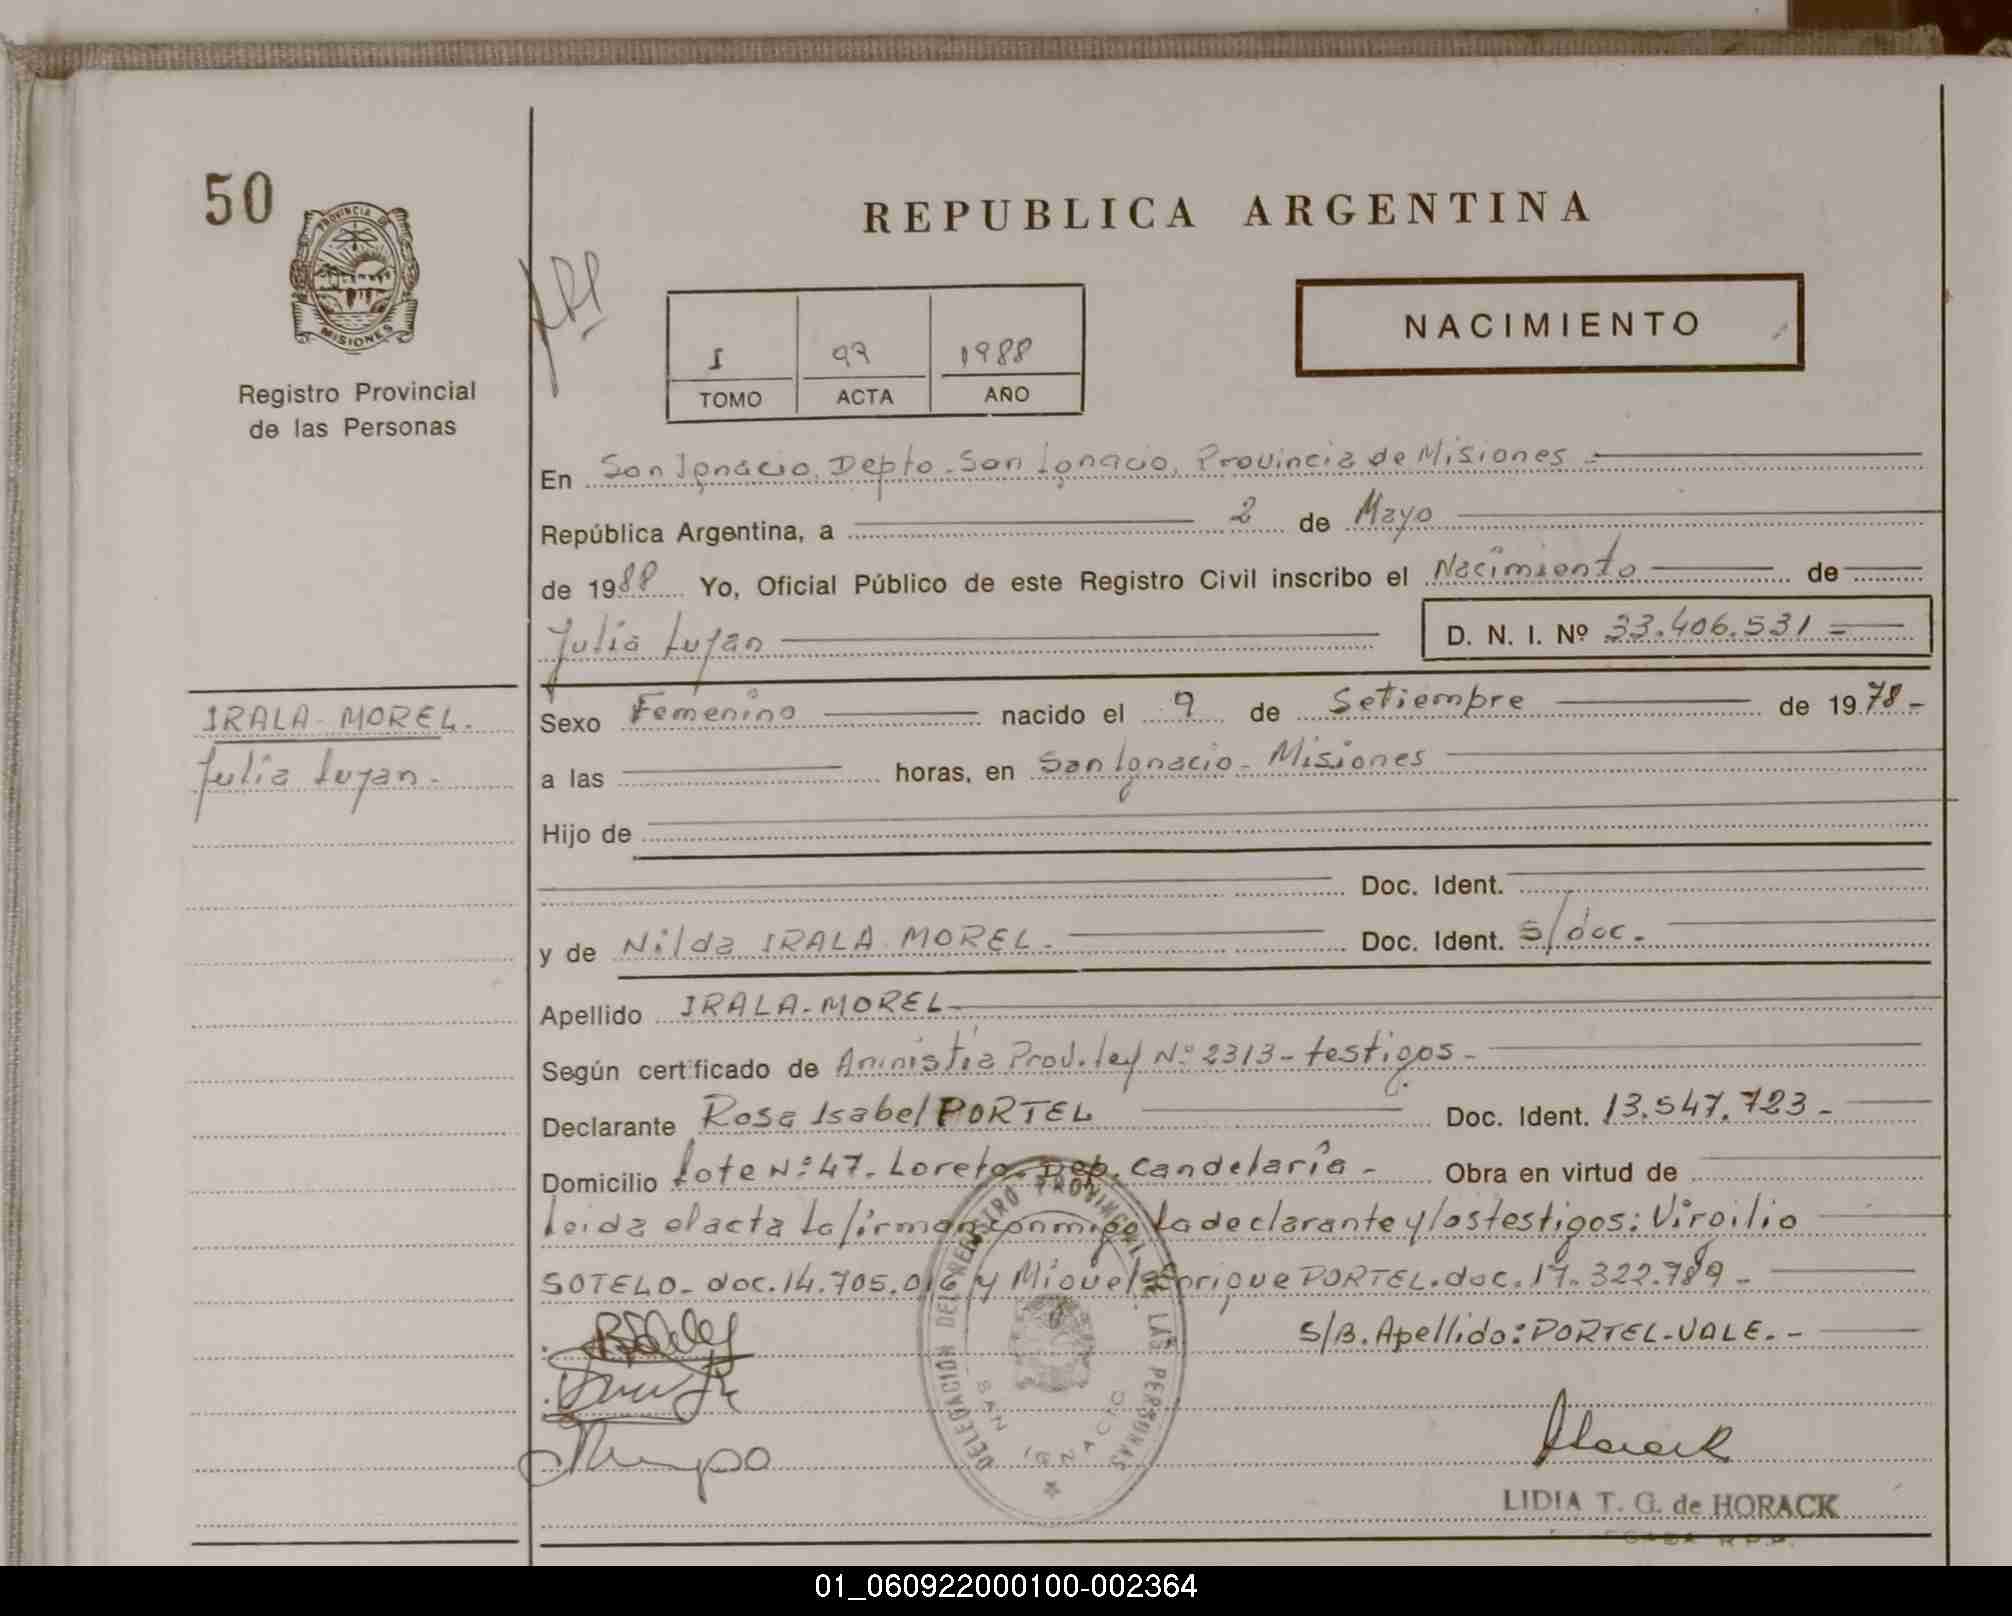 50
PROVINCIA DE
MISIONES
Registro Provincial
de las Personas
REPUBLICA ARGENTINA
NACIMIENTO
I 97 1988
TOMO ACTA AÑO
En San Ignacio, Depto. San Ignacio, Provincia de Misiones
República Argentina, a 2 de Mayo
de 1988 Yo, Oficial Público de este Registro Civil inscribo el Nacimiento de
Julia Lujan D. N. I. Nº 33.406.531 =
IRALA-MOREL.
Julia Lujan.
Sexo Femenino nacido el 9 de Setiembre de 1978-
a las horas, en San Ignacio - Misiones
Hijo de
Doc. Ident.
y de Nilda IRALA MOREL. Doc. Ident. s/doc.
Apellido IRALA-MOREL
Según certificado de Aministia Prov. ley Nº 2313- testigos-
Declarante Rosa Isabel PORTEL Doc. Ident. 13.547.723-
Domicilio Lote Nº 47. Loreto. Dep. Candelaria - Obra en virtud de
Leida el acta la firman conmigo la declarante y los testigos: Virgilio
SOTELO- doc. 14.705.016 y Miguel Enrique PORTEL. doc. 17.322.789-
S/B. Apellido: PORTEL-VALE.-
DELEGACION DEL REGISTRO PROVINCIAL DE LAS PERSONAS
SAN IGNACIO
LIDIA T. G. de HORACK
01_060922000100-002364